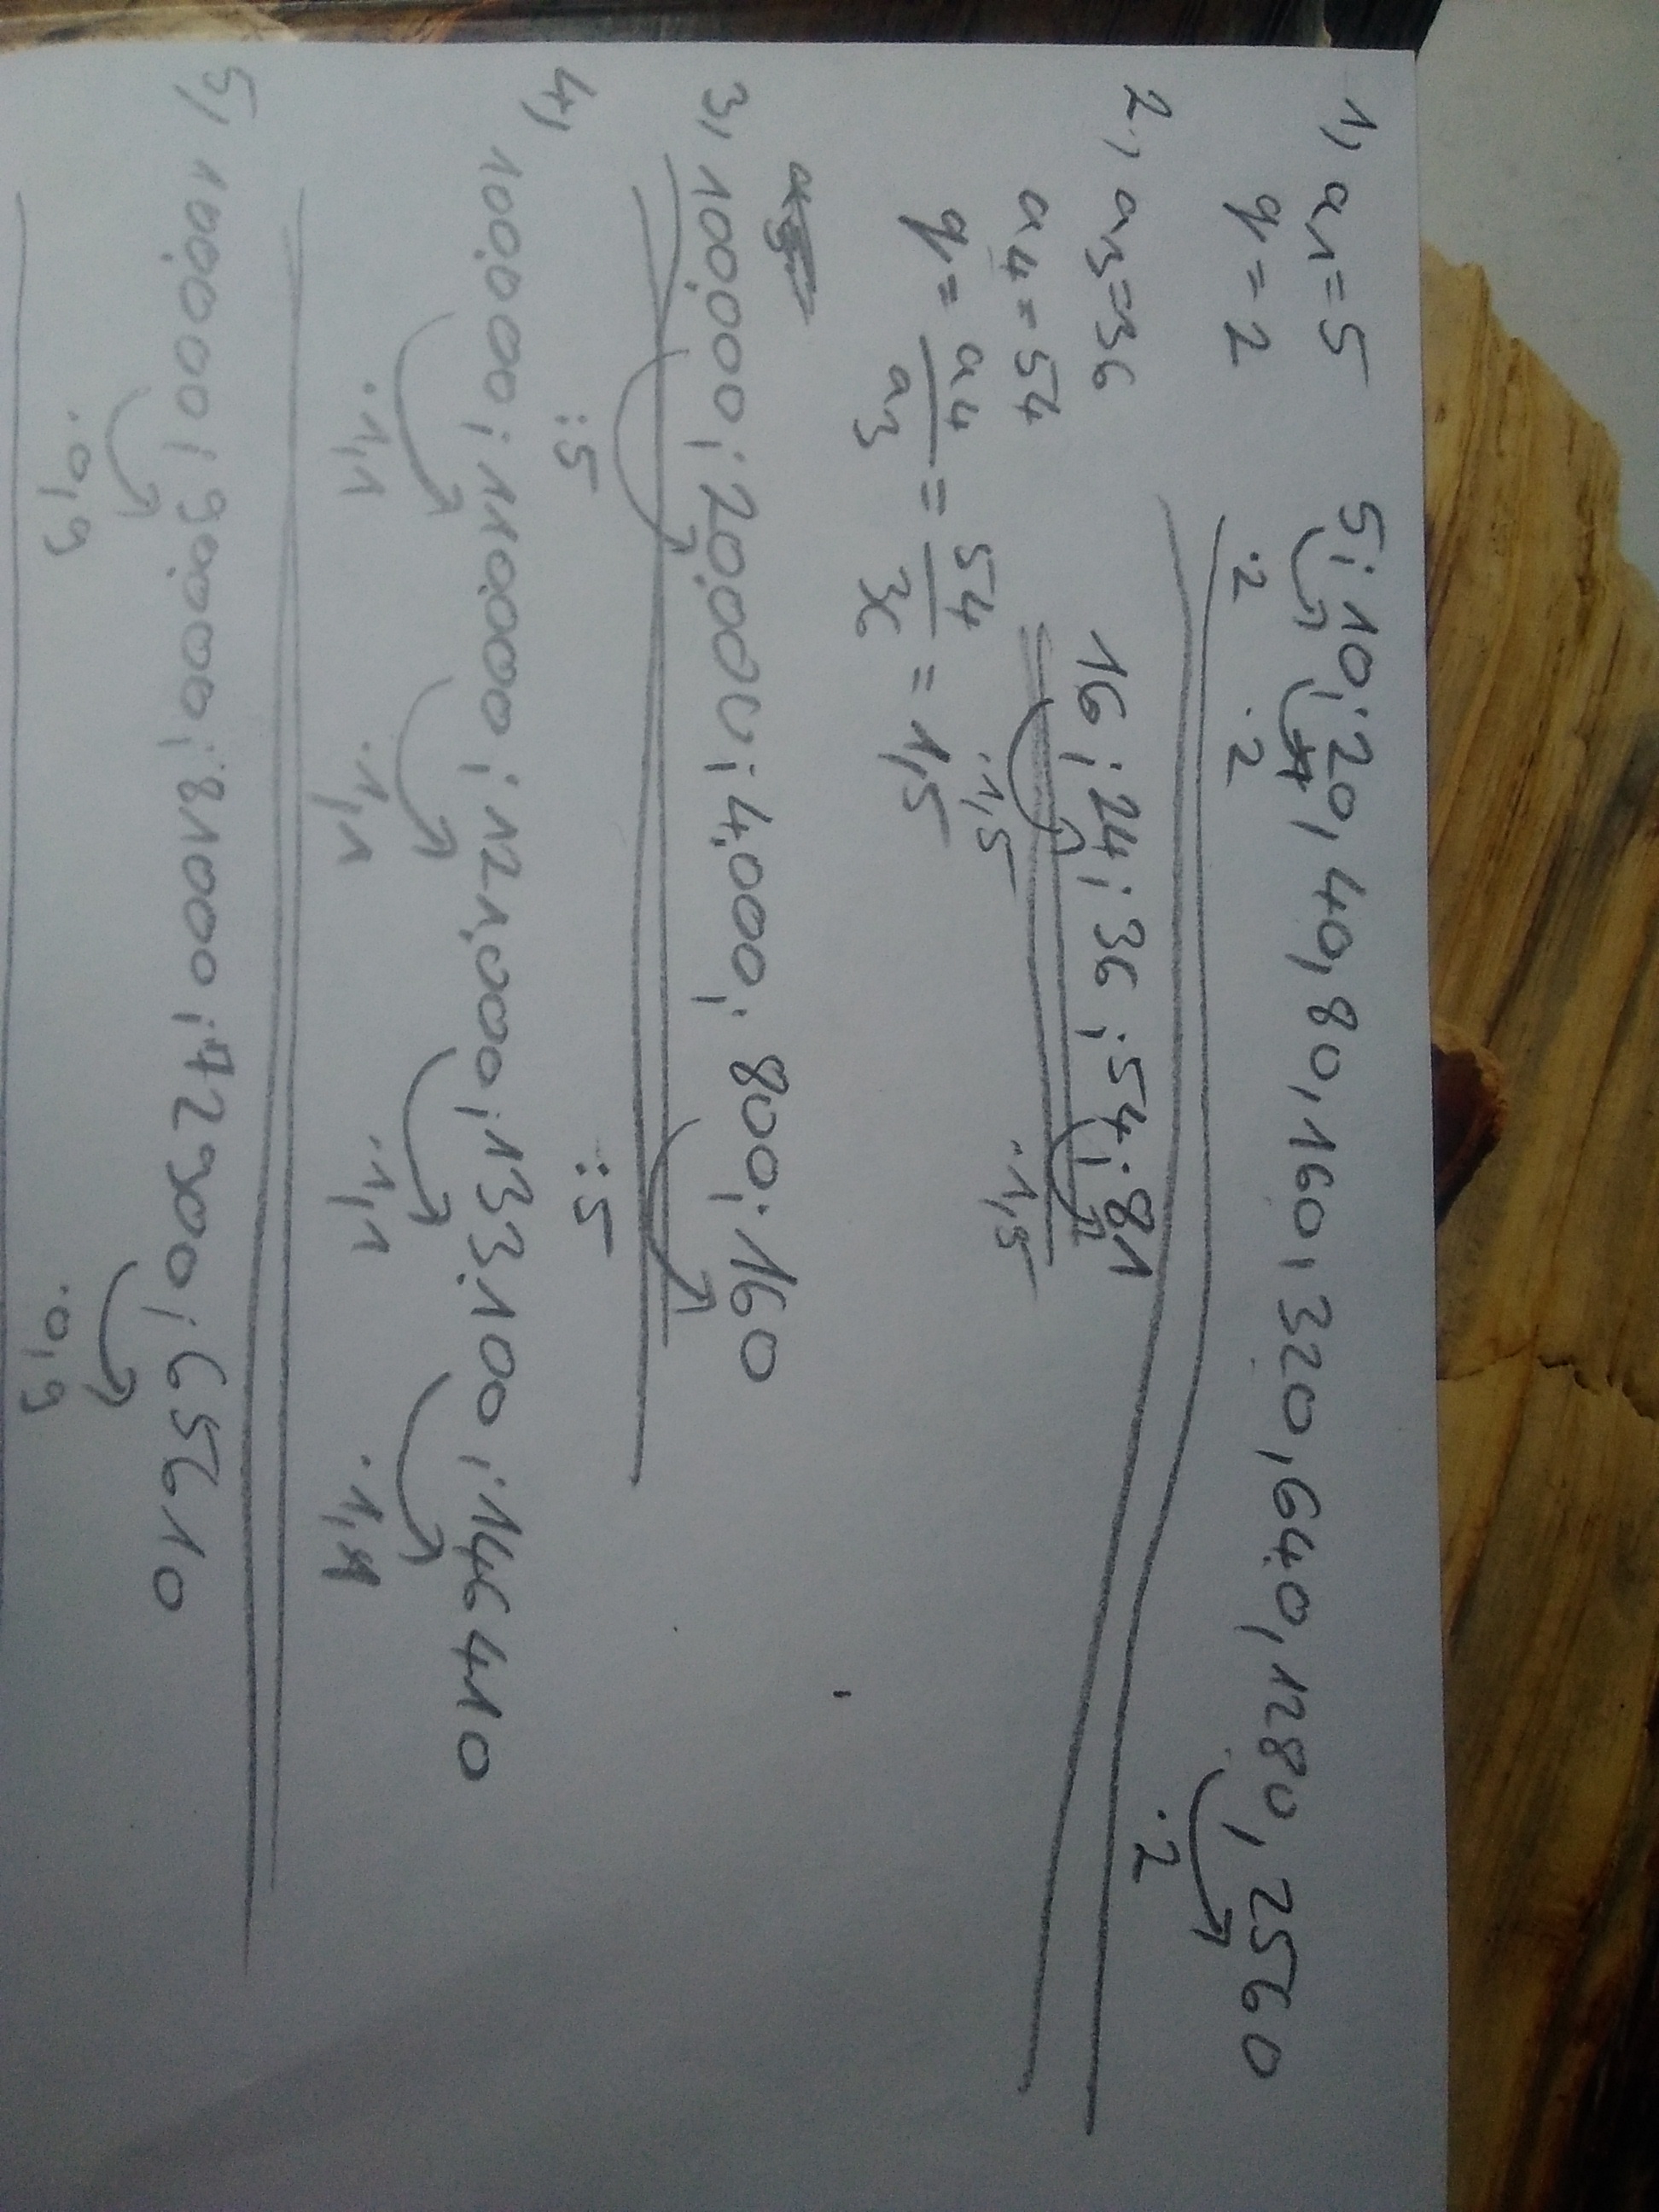 1, a1=5 5; 10; 20, 40, 80, 160, 320, 640, 1280, 2560
q=2 ·2 ·2 ·2
2., a3=36 16 ; 24 ; 36 ; 54 ; 81
a4=54 ·1,5 ·1,5
q= a4/a3 = 54/36 = 1,5
3, 100.000; 20.000; 4.000; 800; 160
:5 :5
4, 100.000; 110.000; 121.000; 133.100; 146410
·1,1 ·1,1 ·1,1 ·1,1
5, 100.000; 90.000; 81000; 72900; 65610
·0,9 ·0,9